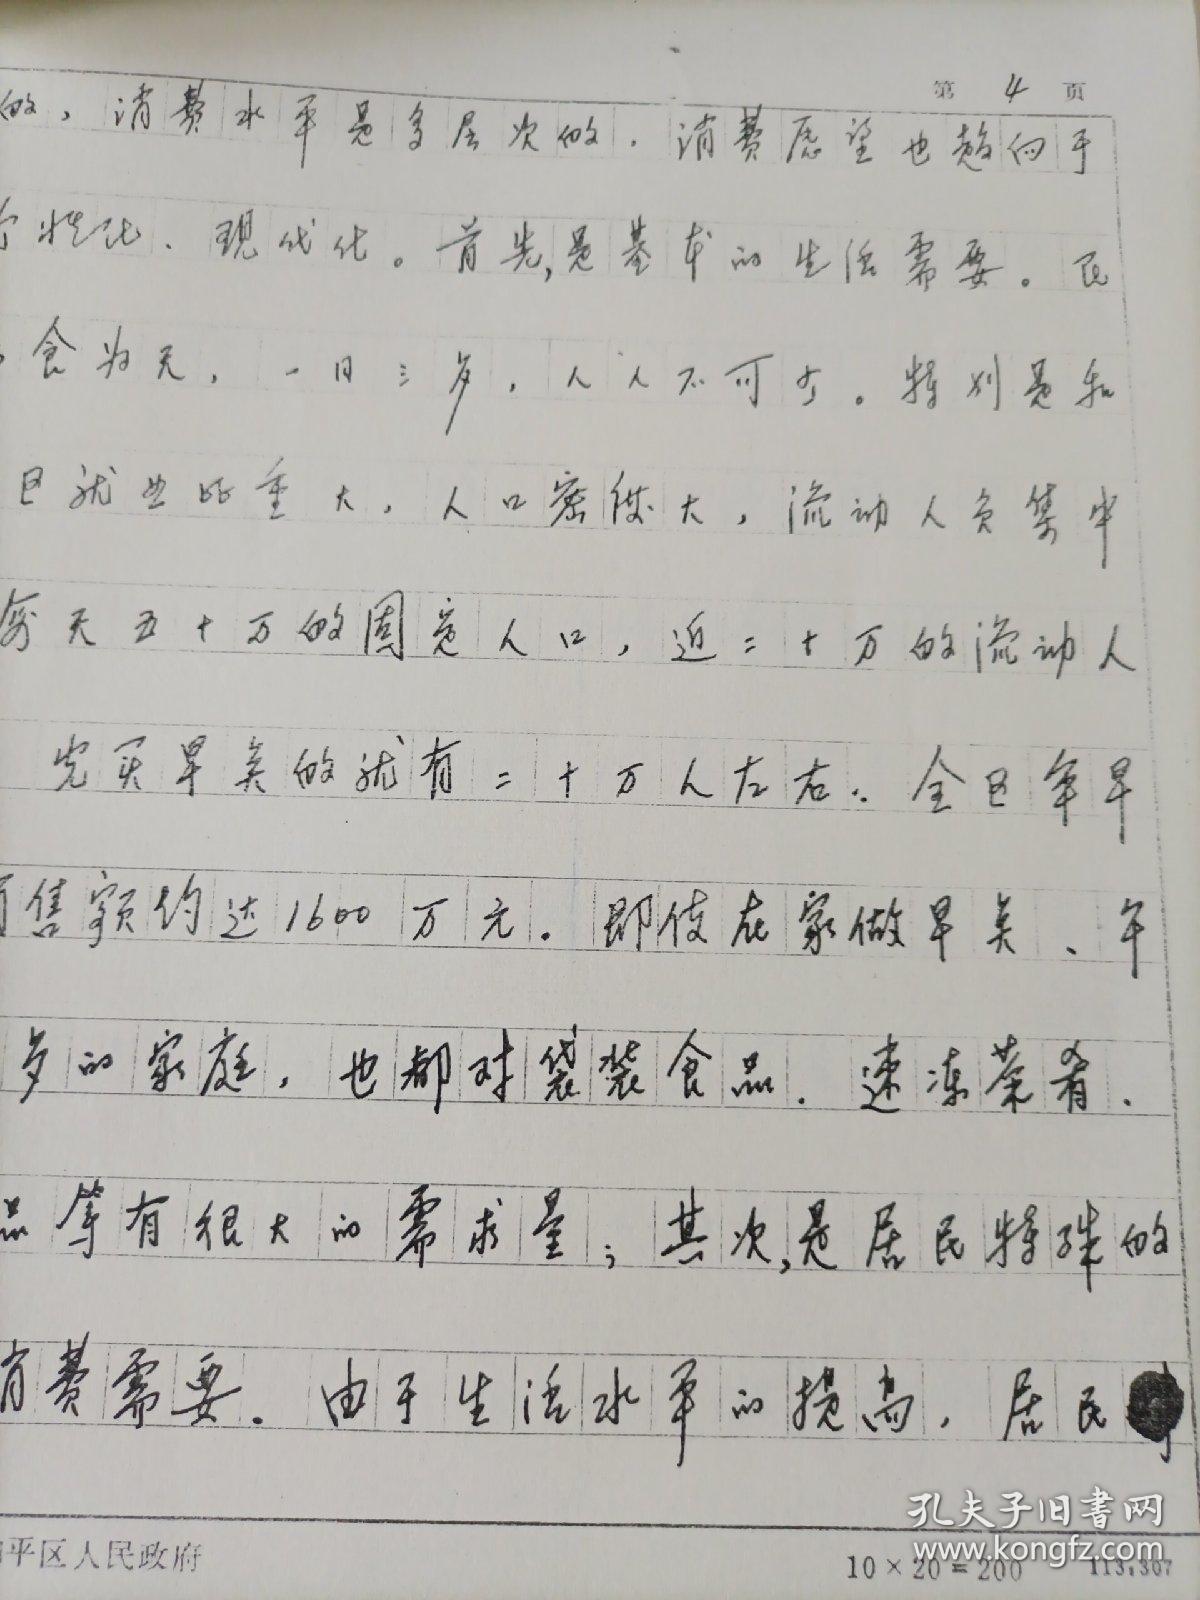 第 4 页
的，消费水平是多层次的。消费愿望也趋向于
性化、现代化。首先，是基本的生活需要。民
食为天，一日三岁，人人不可少。特别是和
区就业比重大，人口密度大，流动人员集中
每天五十万的固定人口，近二十万的流动人
光买早点的就有二十万人左右。全区年早
售额约达1600万元。即使在家做早点、午
岁的家庭，也都对袋装食品、速冻菜肴、
品等有很大的需求量；其次，是居民特殊的
消费需要。由于生活水平的提高，居民
平区人民政府
10×20=200 113.307
孔夫子旧书网
www.kongfz.com